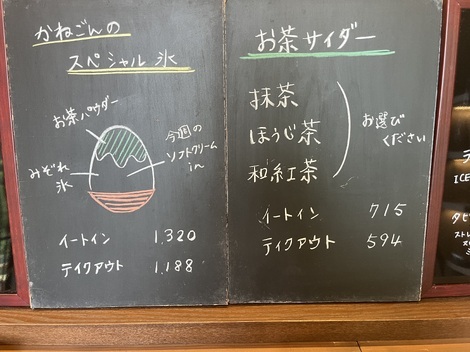 かねごんの
スペシャル 氷
お茶パウダー
みぞれ
氷
今週の
ソフトクリーム
in
イートイン 1,320
テイクアウト 1,188
お茶サイダー
抹茶
ほうじ茶
和紅茶
お選び
ください
イートイン 715
テイクアウト 594
ICE